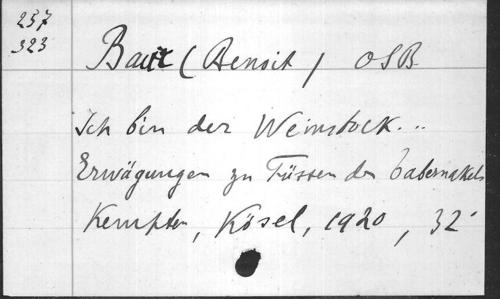 237
323
Baur (Benoit) OSB
Ich bin der Weinstock...
Erwägungen zu Füssen des Tabernakels
Kempten, Kösel, 1920, 32°